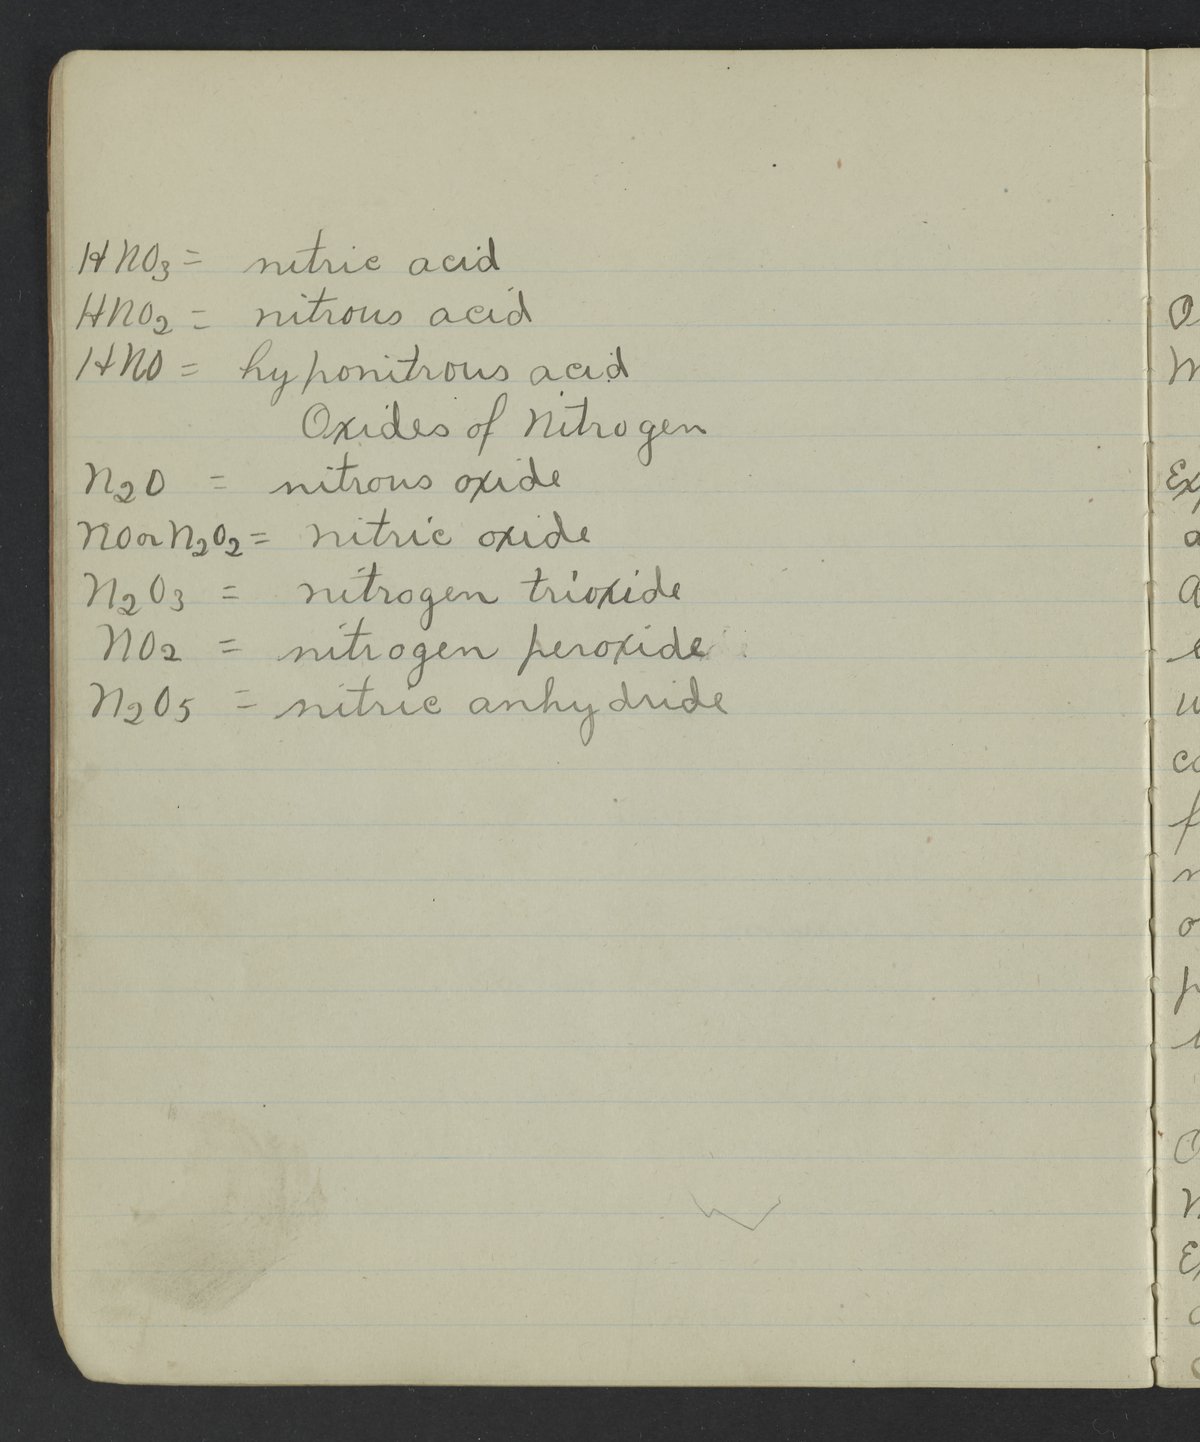 HNO3 = nitric acid
HNO2 = nitrous acid
HNO = hyponitrous acid
Oxides of Nitrogen
N2O = nitrous oxide
NO or N2O2 = nitric oxide
N2O3 = nitrogen trioxide
NO2 = nitrogen peroxide
N2O5 = nitric anhydride